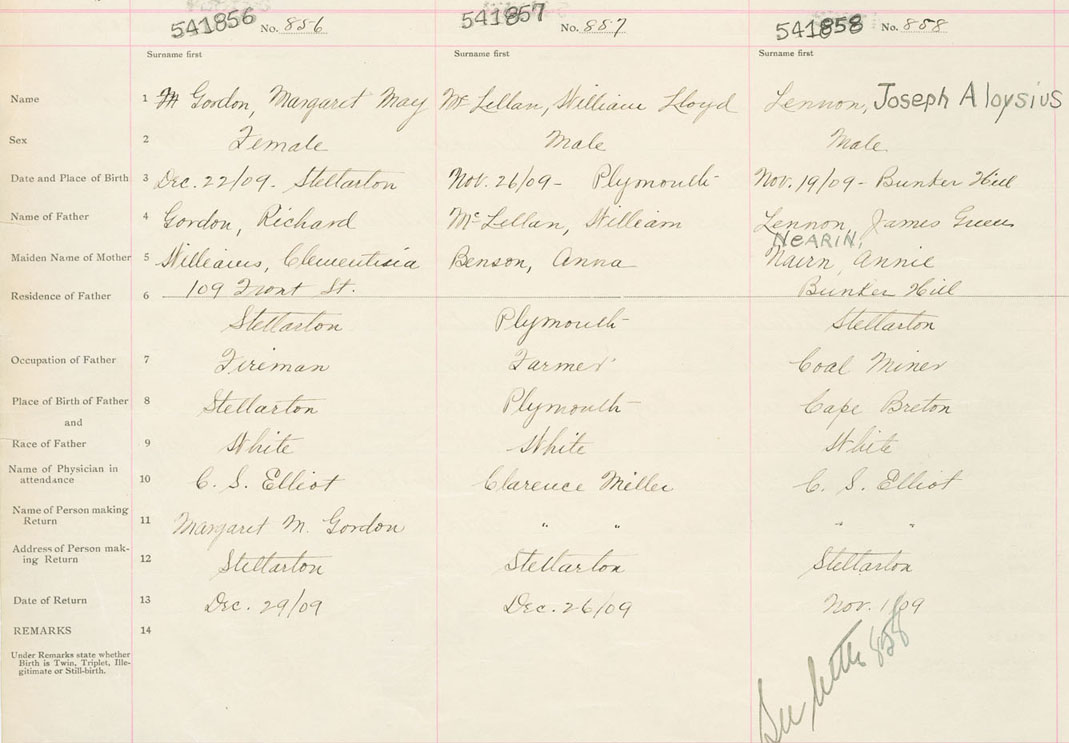 541856 No. 856 541857 No. 857 541858 No. 858
Surname first Surname first Surname first
Name 1 Gordon, Margaret May Mc Lellan, William Lloyd Lennon, Joseph Aloysius
Sex 2 Female Male Male
Date and Place of Birth 3 Dec. 22/09. Stellarton Nov. 26/09 - Plymouth Nov. 19/09 - Bunker Hill
Name of Father 4 Gordon, Richard Mc Lellan, William Lennon, James Green
NeARIN,
Maiden Name of Mother 5 Williams, Clementina Benson, Anna Nairn, Annie
109 Front St. Bunker Hill
Residence of Father 6
Stellarton Plymouth Stellarton
Occupation of Father 7 Fireman Farmer Coal Miner
Place of Birth of Father 8 Stellarton Plymouth Cape Breton
and
Race of Father 9 White White White
Name of Physician in
attendance 10 C. S. Elliot Clarence Miller C. S. Elliot
Name of Person making
Return 11 Margaret M. Gordon " " " "
Address of Person mak-
ing Return 12 Stellarton Stellarton Stellarton
Date of Return 13 Dec. 29/09 Dec. 26/09 Nov. 1/09
REMARKS 14
Under Remarks state whether
Birth is Twin, Triplet, Ille-
gitimate or Still-birth.
See letter 858